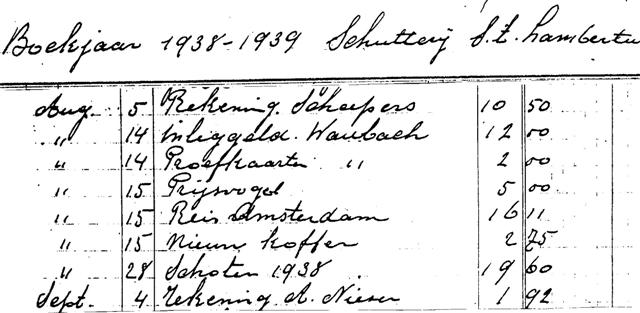 Boekjaar 1938-1939 Schutterij S.t. Lambertu
Aug. 5 Rekening Scheepers 10 50
" 14 inleggeld. Waubach 12 00
" 14 Proefkaarten " 2 00
" 15 Prijsvogel 5 00
" 15 Reis Amsterdam 16 11
" 15 Nieuw koffer 2 75
" 28 Schoten 1938 19 60
Sept. 4 rekening A. 1 92